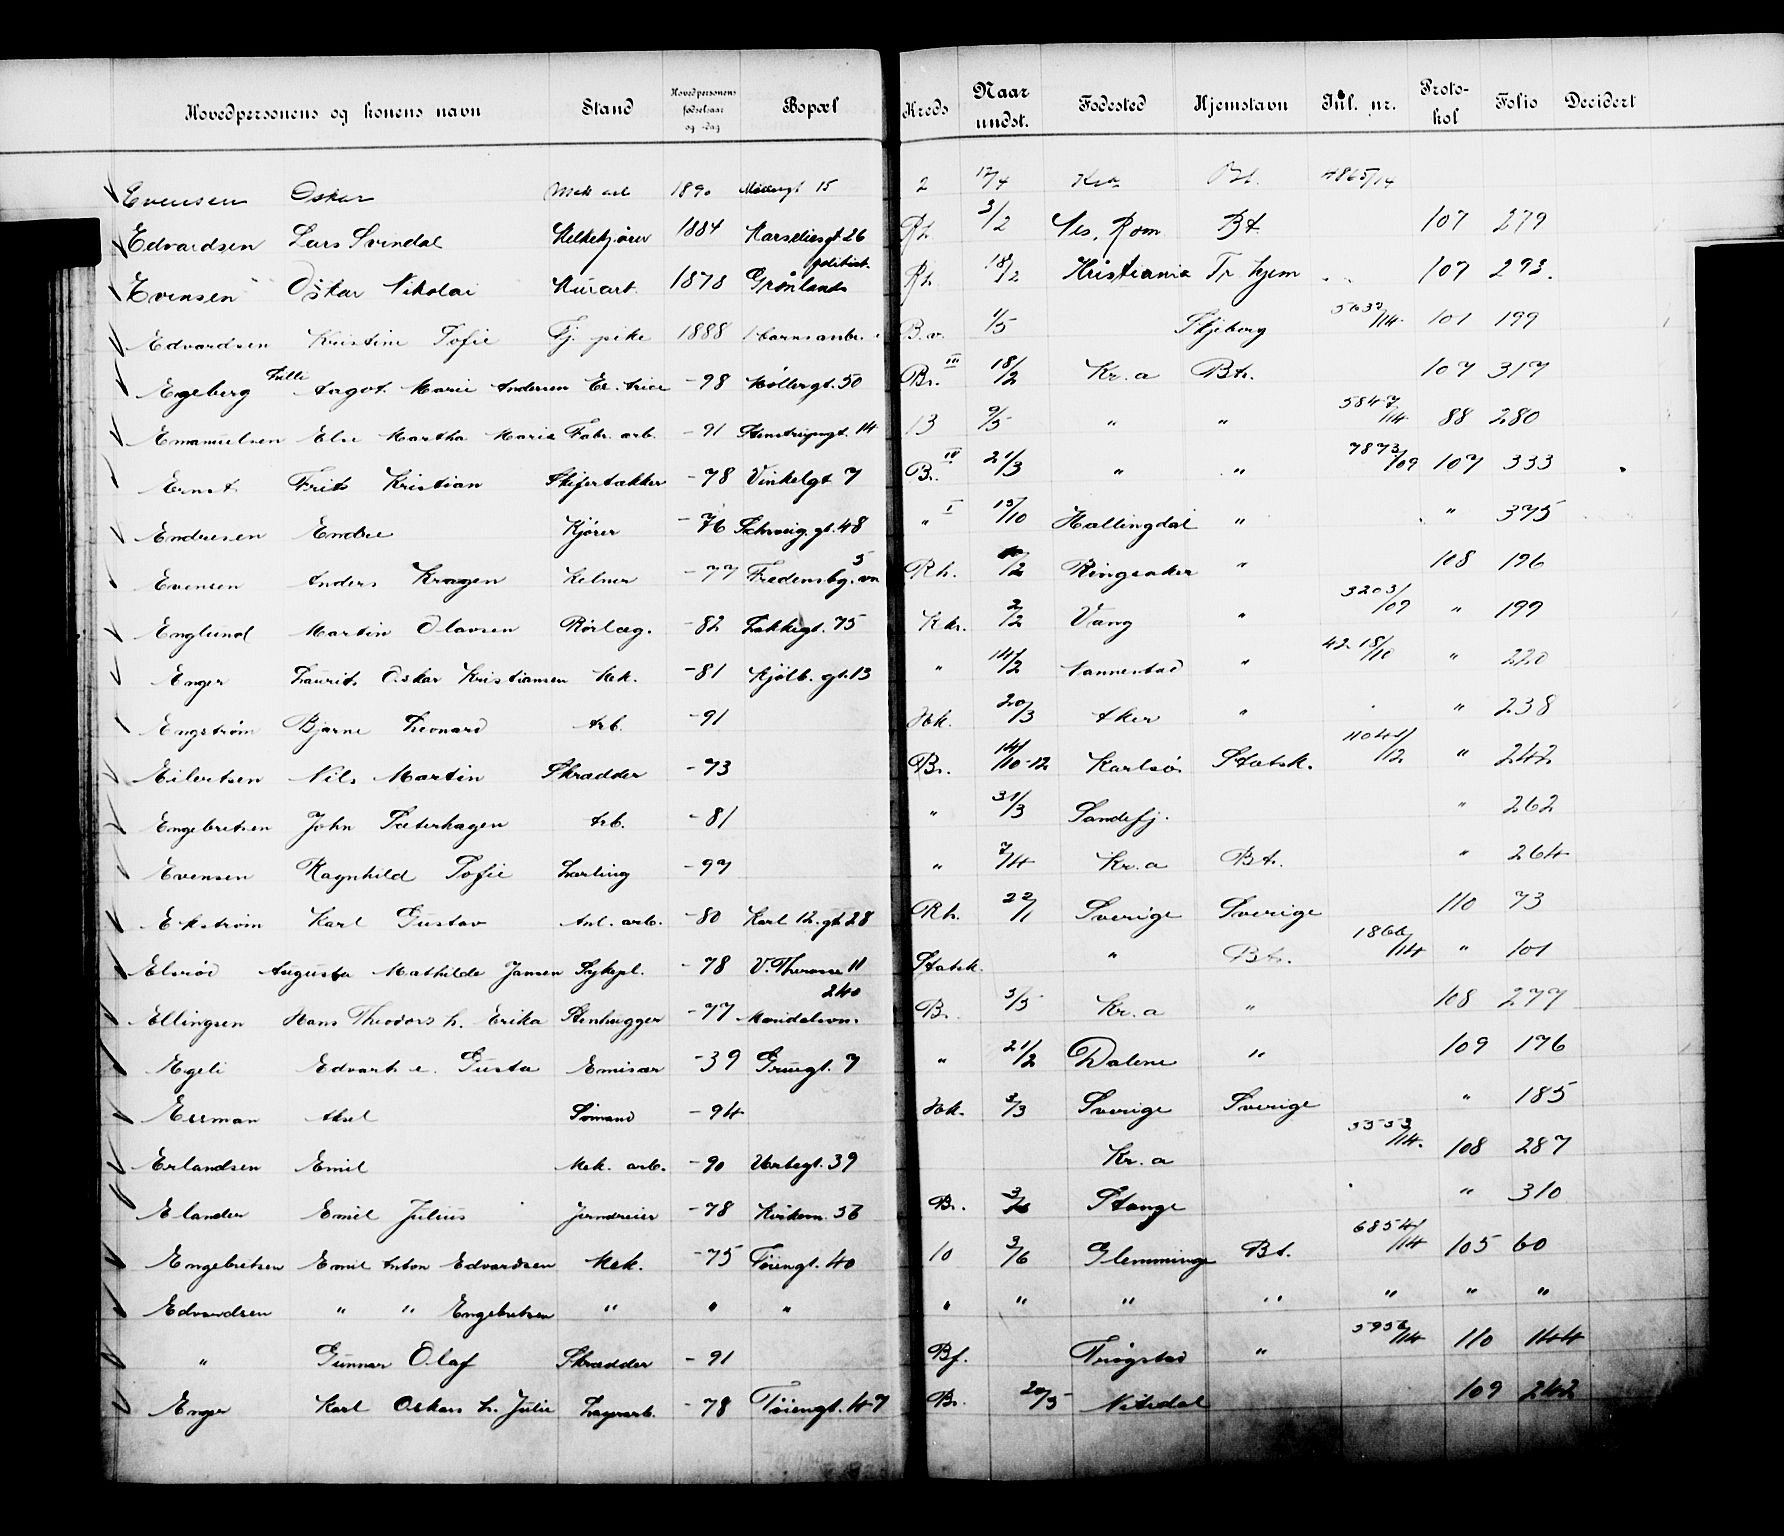 Hovedpersonens og konens navn Stand Hovedpersonens fødselsaar og -dag Bopæl Kreds Naar undst. Fødested Hjemstavn Jnl. nr. Protokol Folio Decidert
Evensen Oskar Mek arb 1890 Møllergt 15 2 17/4 Kra Bt. 4865/14
Edvardsen Lars Svindal Melkekjører 1884 Marseliesgt. 26 Rh 3/2 Nes, Rom. Bt. 107 279
Evensen Oskar Nikolai Murarb. 1878 Grønlands politist. Rh 18/2 Kristiania Tr hjem 107 293.
Edvardsen Kristine Sofie Tj. pike 1888 B.v. 1/5 Skjeberg /14 101 199
Egeberg Aagot Marie Andersen -98 Møllergt. 50 Br. III 18/2 Kr.a Bt. 107 317
Emanuelsen Else Martha Marie Fabr. arb. -91 Stenstrupsgt. 14 13 9/5 " " 5847/14 88 280
Ernst Frits Kristian Skifertækker -78 Vinkelgt 7 Br. IV 21/3 " " 7873/09 107 333
Endresen Endre Kjører -76 Schweig. gt. 48 " I 13/10 Hallingdal " " 375
Evensen Anders Kragen Kelner -77 Fredensbg. vn 5 Rh. /2 Ringsaker " 108 196
Englund Martin Olavsen Rørlæg. -82 Lakkegt. 75 Kkr. 2/2 Vang " 3203/09 " 199
Enger Laurits Oskar Kristiansen Mek. -81 Kjølb. gt. 13 " 14/2 Nannestad " 4218/10 " 220
Engstrøm Bjarne Leonard Arb. -91 Hk. 20/3 Aker " " 238
Eilertsen Nils Martin Skrædder -73 Br. 14/10-12 Karlsø Statsk. 11041/12 " 242
Engebretsen John Sæterhagen Arb. -81 " 31/3 Sandefj. " 262
Evensen Ragnhild Sofie Lærling -97 " 7/4 Kr.a Bt. " 264
Ekstrøm Karl Gustav Anl. arb. -80 Karl 12. gt. 28 Rh. 22/1 Sverige Sverige 110 73
Elvrød Augusta Mathilde Jansen Sykepl. -78 V. Therese 11 Statsk. " Bt. 1866/14 " 101
Ellingsen Hans Theodors h. Erika Stenhugger -77 Maridalsvn. 240 Br. 3/5 Kr.a " 108 277
Egeli Edvart e. Gusta Emisær -39 Gruegt. 7 " 21/2 Dalene " 109 176
Aksel Sømand -94 Hk. 3/3 Sverige Sverige " 185
Erlandsen Emil Mek. arb. -90 Verksgt. 39 Kr.a 5553/14. 108 287
Elander Emil Julius Jerndreier -78 Br. Stange " 310
Engebretsen Emil Anton Edvardsen Mek. -75 Tøiengt. 40 10 3/6 Glemminge Bt. 6854/14 105 60
Edvardsen " " Engebretsen " " " " " " " " " "
" Gunnar Olaf Skrædder -91 Bf. Trøgstad " 5956/14 110 144
Enger Karl Oskars h. Julie Lagerarb. -78 Tøiengt. 47 Br. 20/5 Nitedal 109 242